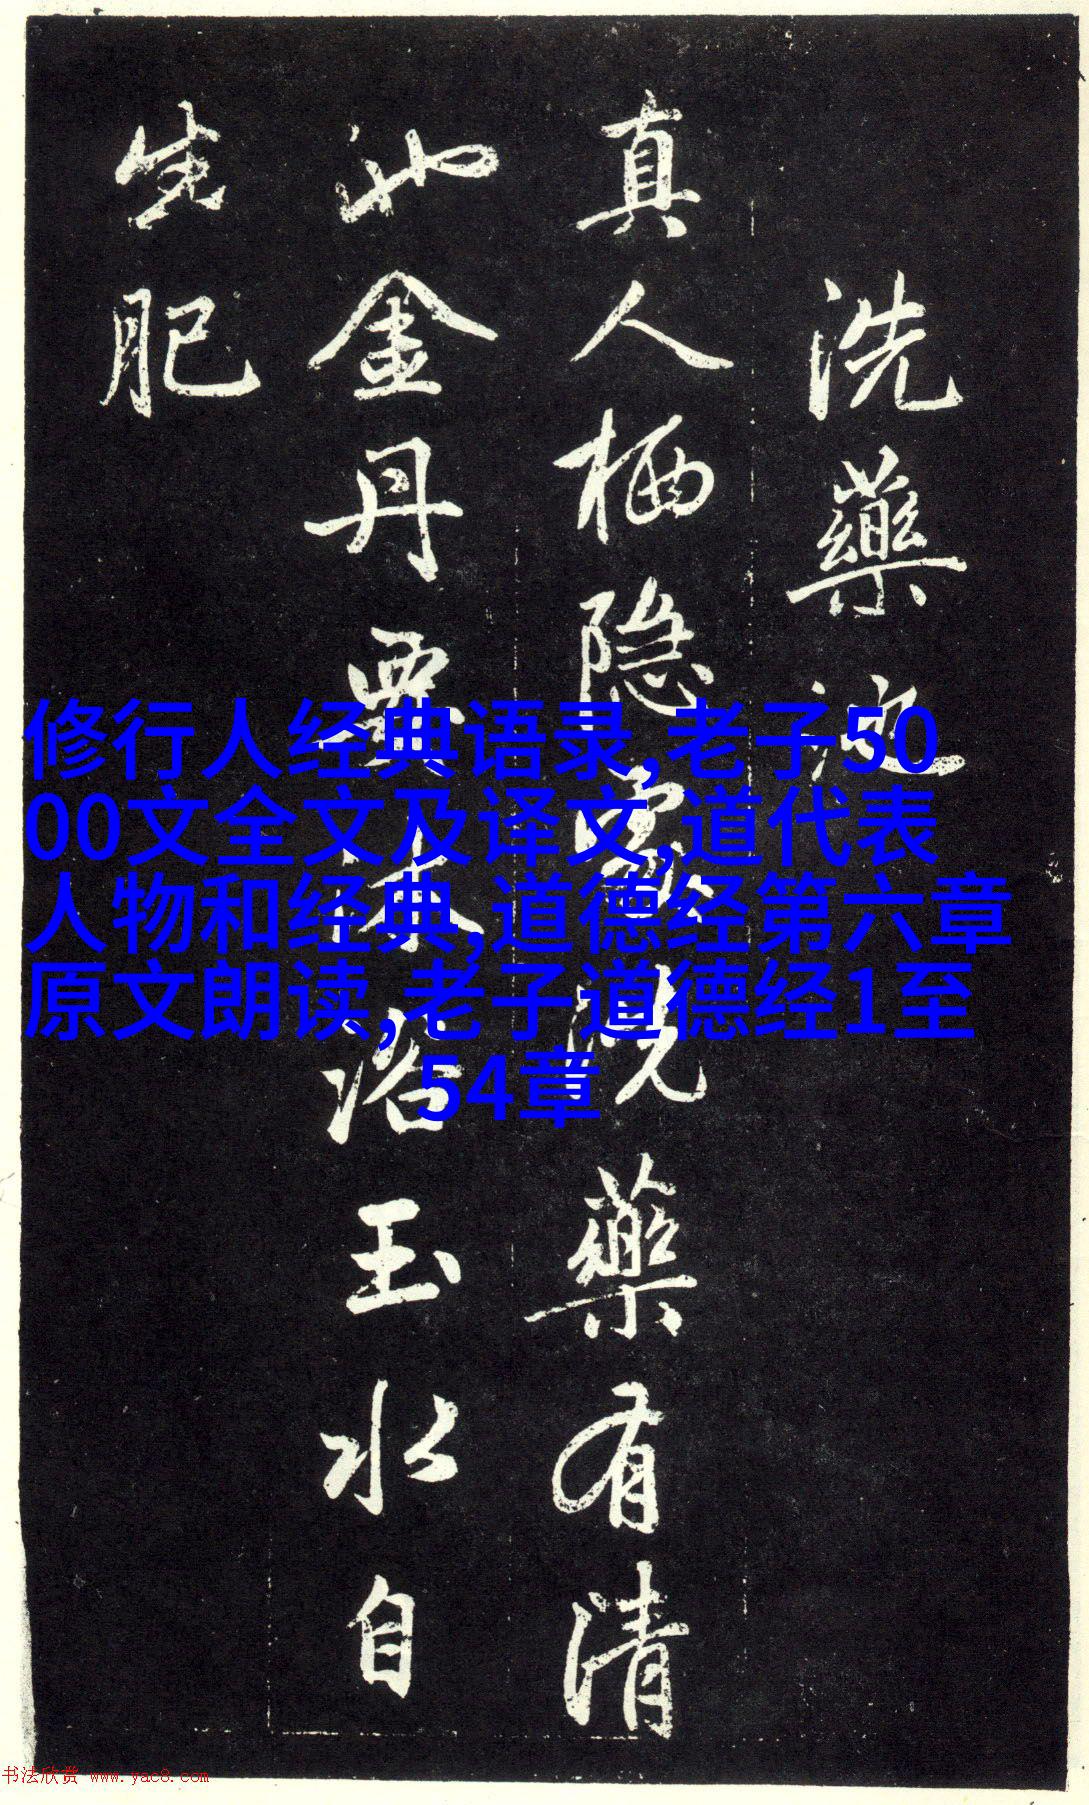 洗藥池
真人栖隐處洗藥有清
池金丹要沐浴玉水自
生肥
修行人经典语录,老子50
00文全文及译文,道代表
人物和经典,道德经第六章
原文朗读,老子道德经1至
54章
书法欣赏 www.yac8.com